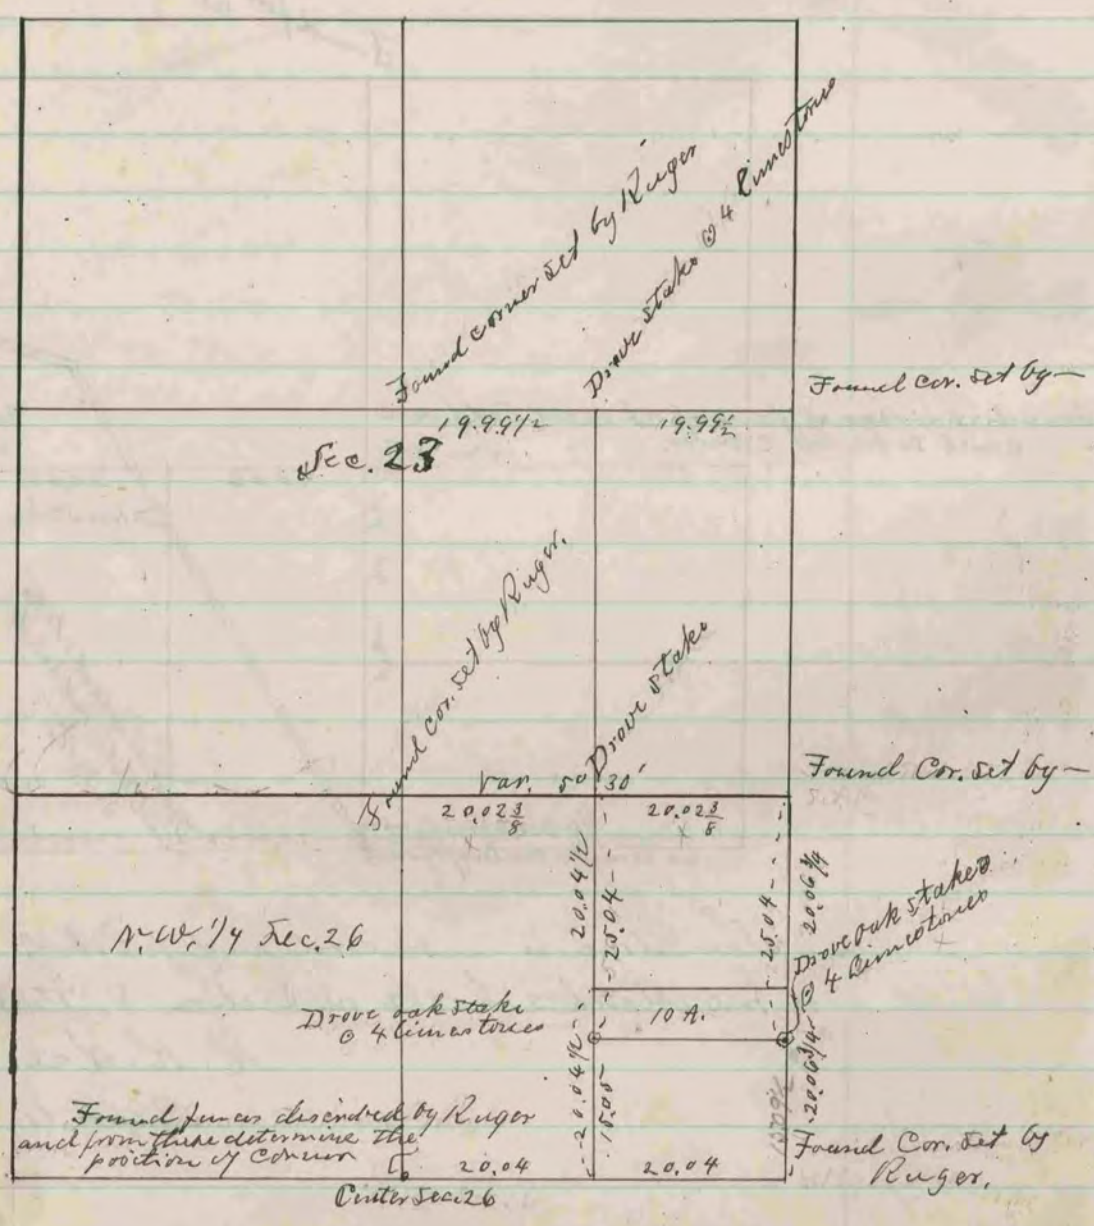 Found corner set by Ruger
Drove stake @ 4 limestones
Found cor. set by —
19.99 1/2
19.99 1/2
Sec. 23
Found cor. set by Ruger.
Drove stake
Found Cor. set by —
Var. 5° 30'
20.02 3/8
20.02 3/8
x
x
20.04 1/2
25.04
25.04
20.06 3/4
Drove oak stakes
@ 4 limestones
x
N.W. 1/4 Sec. 26
Drove oak stake
@ 4 limestones
10 A.
20.04 1/2
15.05
20.06 3/4
Found fences described by Ruger
and from these determine the
position of corner
20.04
20.04
Found Cor. set by
Ruger.
Center Sec. 26